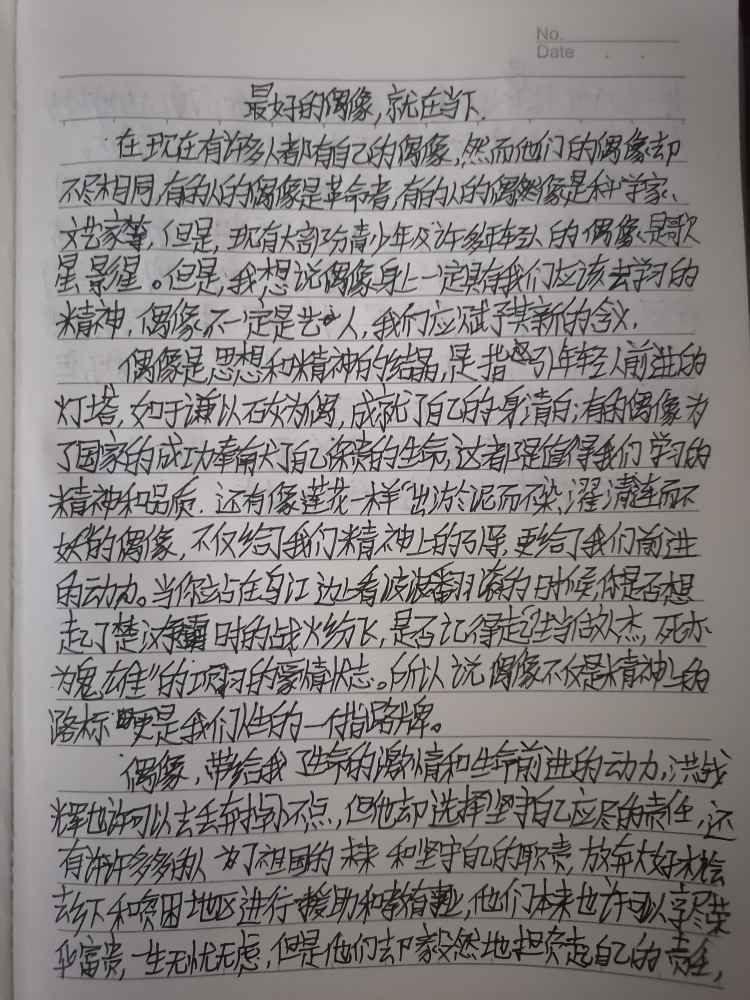 No.
Date
最好的偶像,就在当下.
在现在有许多人都有自己的偶像,然而他们的偶像却
不尽相同,有的人的偶像是革命者,有的人的偶像是科学家、
文艺家等,但是,现有大部分青少年及许多年轻人的偶像是歌
星影星。但是,我想说偶像身上一定具有我们应该去学习的
精神,偶像不一定是艺人,我们应赋予其新的含义.
偶像是思想和精神的结晶,是指引年轻人前进的
灯塔,如于谦以石灰为偶,成就了自己的一身清白;有的偶像为
了国家的成功奉献了自己保贵的生命,这都是值得我们学习的
精神和品质.还有像莲花一样“出淤泥而不染,濯清涟而不
妖”的偶像,不仅给了我们精神上的引导,更给了我们前进
的动力。当你站在乌江边上看波波翻滚的时候,你是否想
起了楚汉争霸时的战火纷飞,是否记得起“生当做人杰,死亦
为鬼雄”的项羽的豪情状志。所以说偶像不仅是精神上的
路标更是我们人生的一个指路牌。
偶像,带给我了生命的激情和生命前进的动力,洪战
辉也许可以去丢弃掉小不点,但他却选择坚守自己应尽的责任,还
有许许多多的人为了祖国的未来和坚守自己的职责,放弃大好机会
去乡下和贫困地区进行援助和教育事业,他们本来也许可以享尽荣
华富贵,一生无忧无虑,但是他们却毅然地担负起自己的责任,